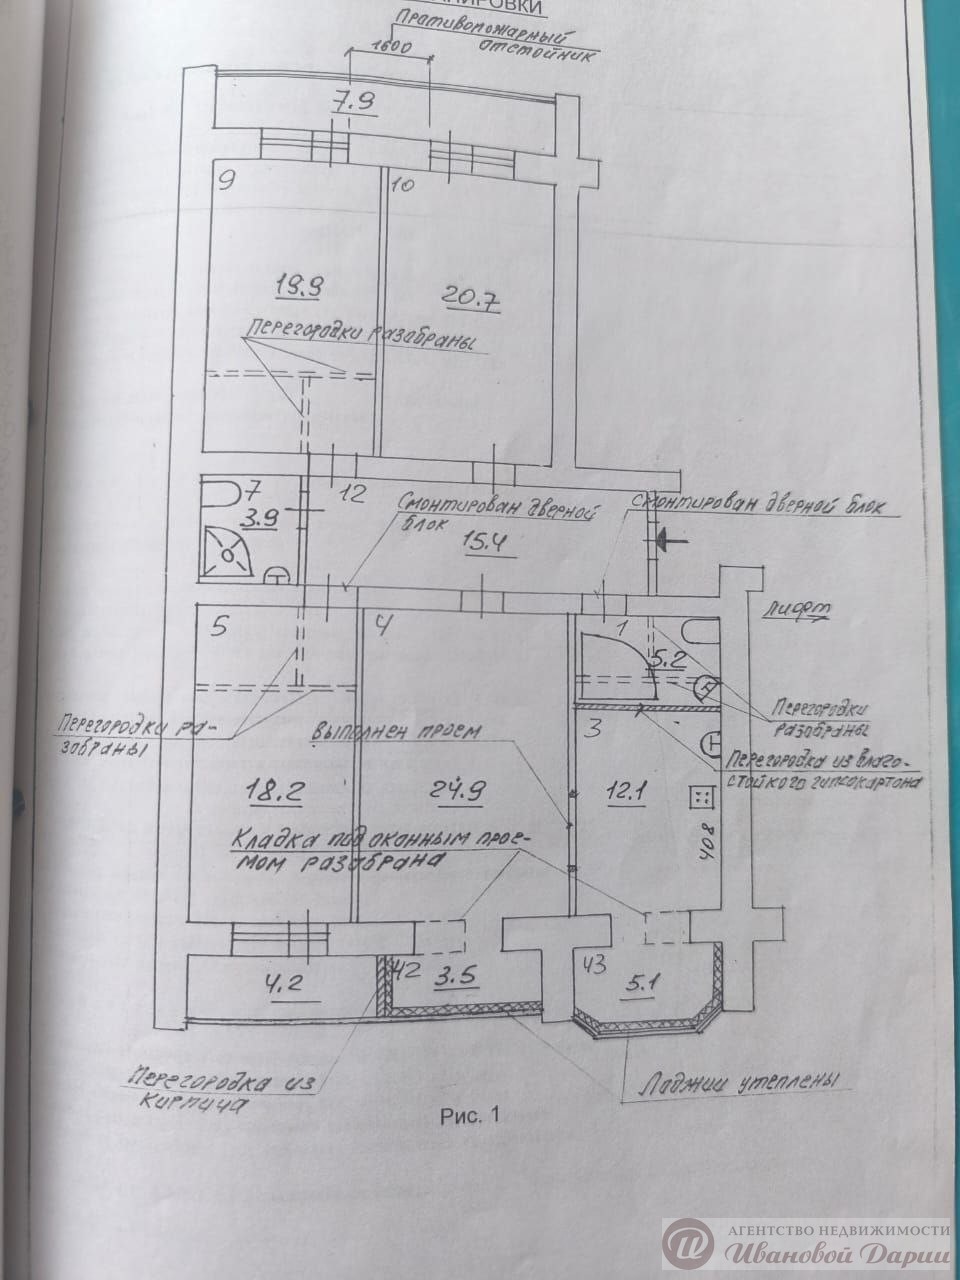 АНИРОВКИ
Противопожарный
отстойник
1600
7.9
9
10
19.9
20.7
Перегородки разобраны
7
12
3.9
Смонтирован дверной
блок
Смонтирован дверной блок
15.4
лифт
5
4
1
5.2
Перегородки ра-
зобраны
Выполнен проем
3
Перегородки
разобраны
Перегородка из влаго-
стойкого гипсокартона
18.2
24.9
12.1
408
Кладка под оконным прое-
мом разобрана
4.2
42
3.5
43
5.1
Перегородка из
кирпича
Лоджии утеплены
Рис. 1
АГЕНТСТВО НЕДВИЖИМОСТИ
Ивановой Дарии